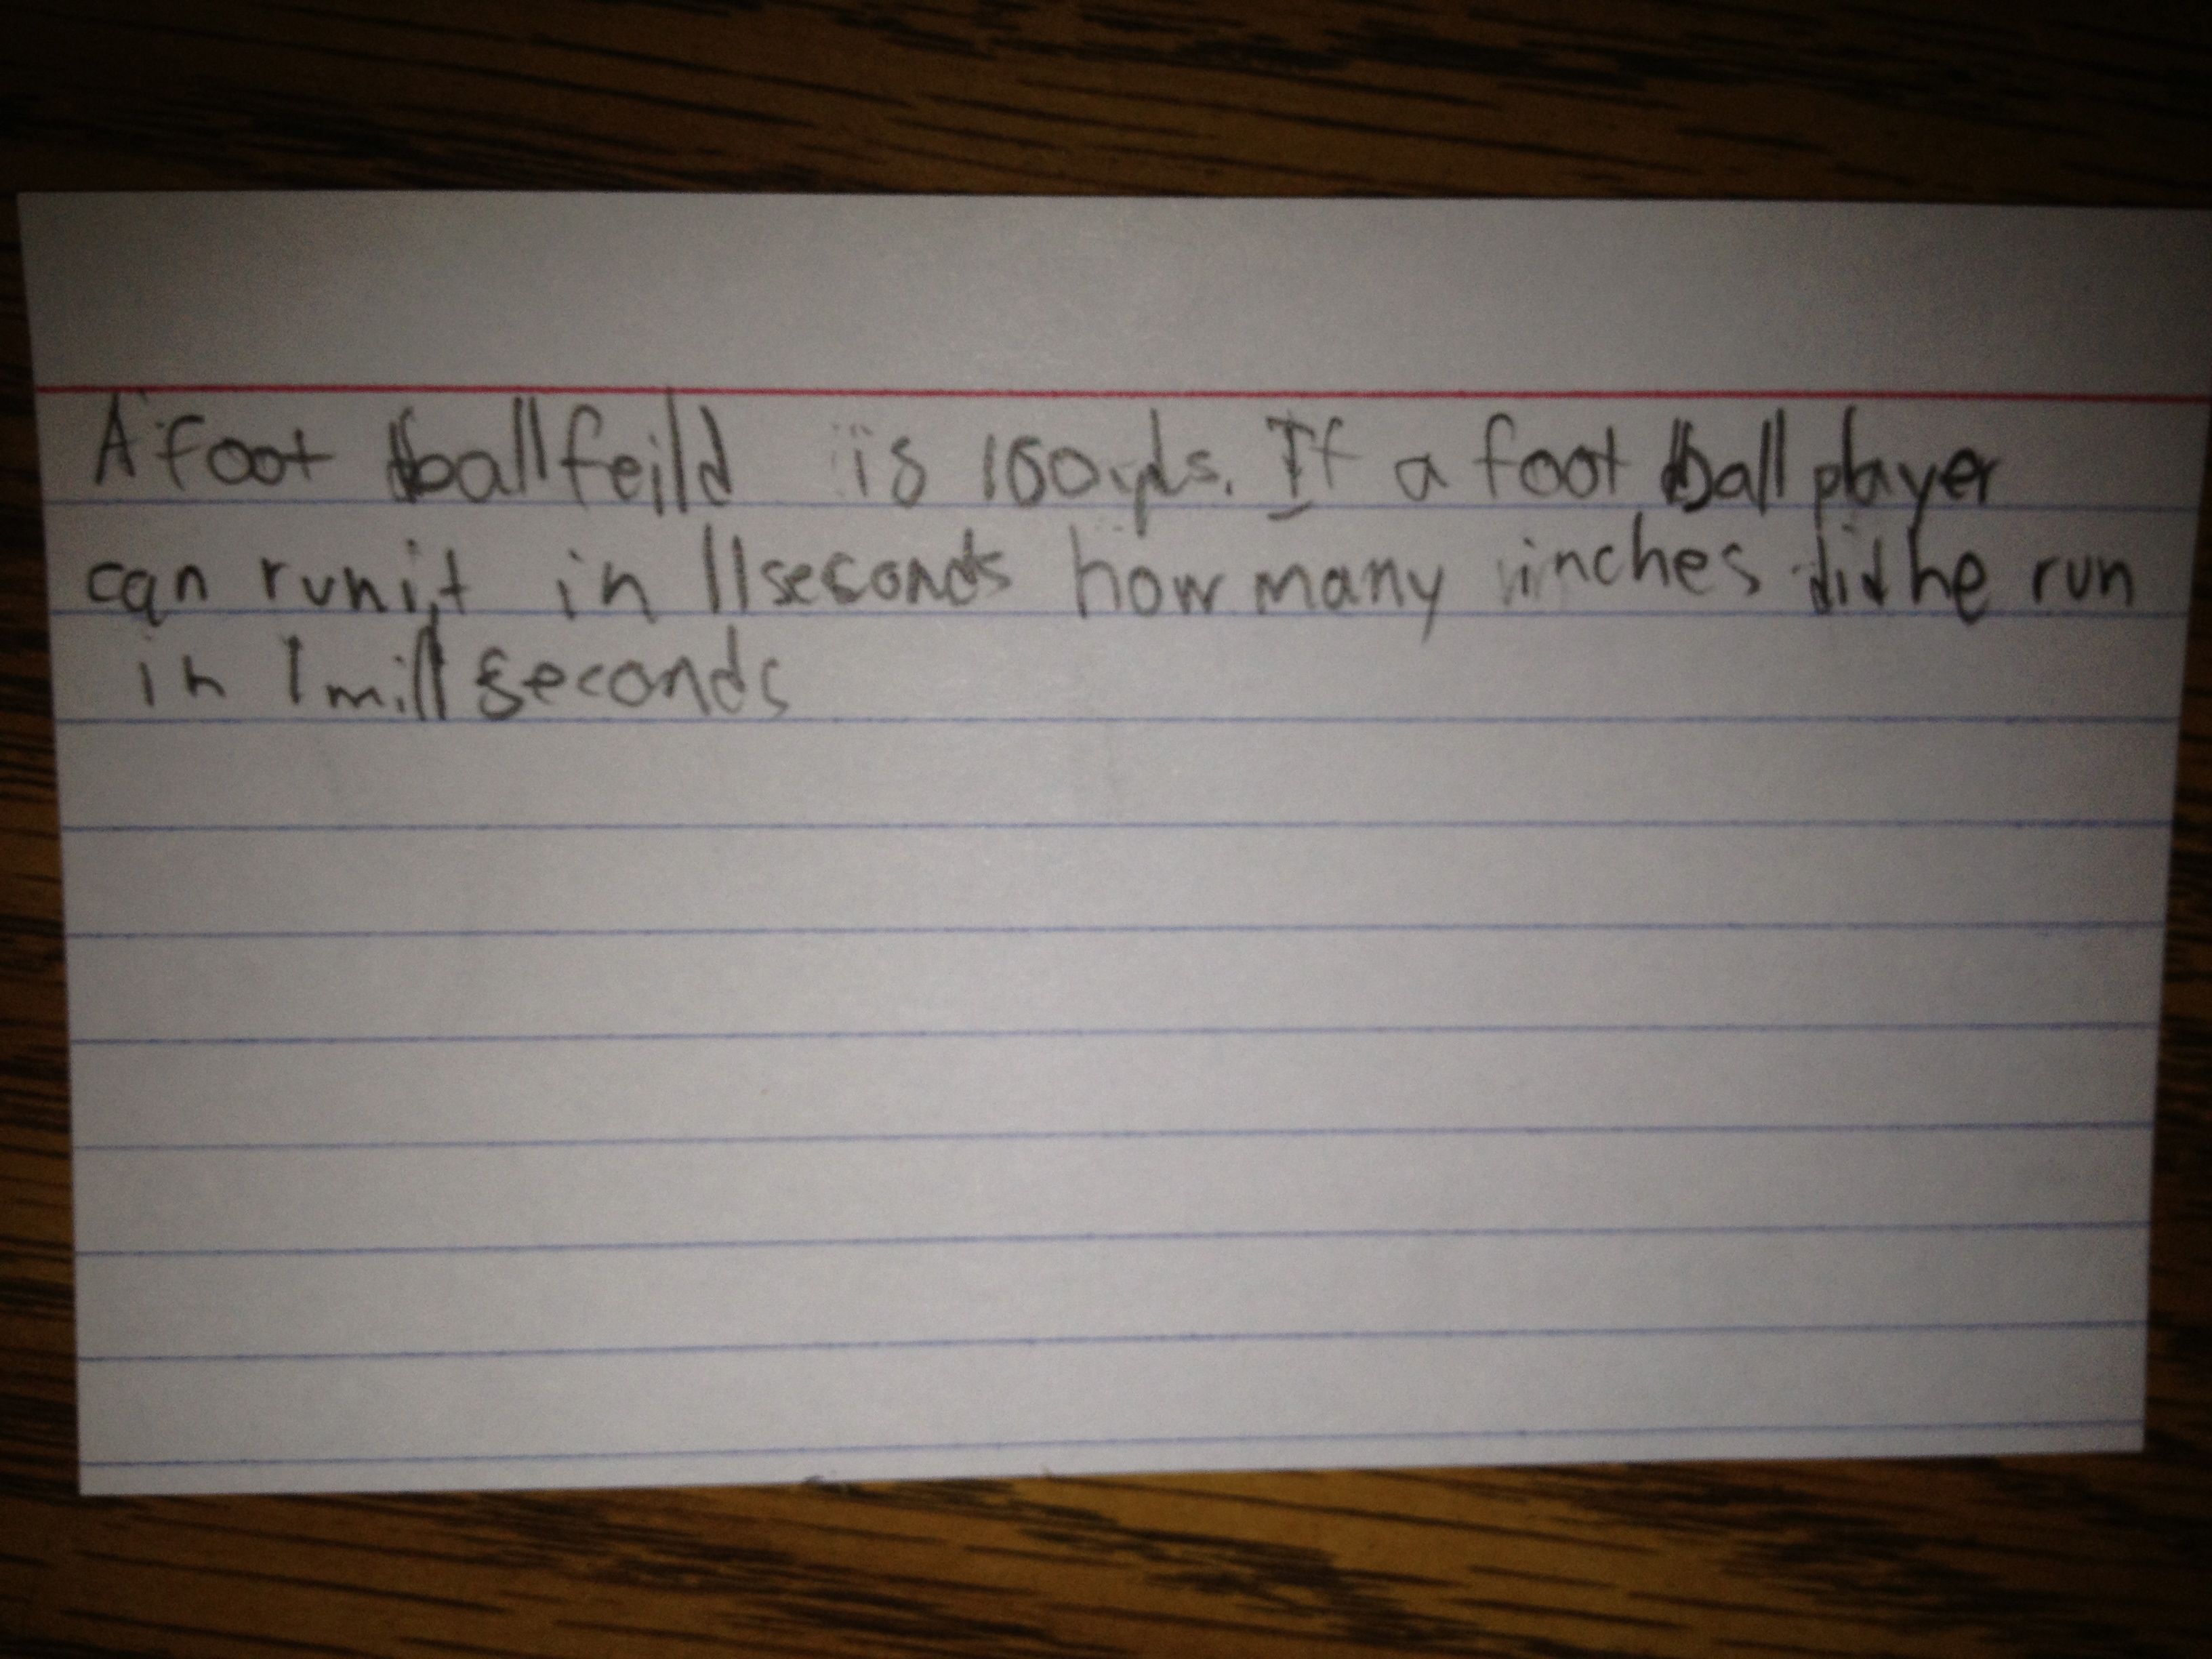 A foot ball feild is 100 yds. If a foot ball player
can run it in 11 seconds how many inches did he run
in 1 mill seconds